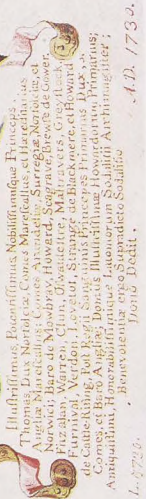 Illustrissimus, Potentissimus, Nobilissimusque Princeps,
Thomas, Dux Norfolciæ, Comes Marescallus, et Hæreditarius
Angliæ Marescallus; Comes Arundeliæ, Surregiæ, Norfolciæ, et
Norwich; Baro de Mowbray, Howard, Seagrave, Brewse de Gower,
Fitzalan, Warren, Clun, Oswaldtre, Maltravers, Greystock,
Furnival, Verdon, Lovetot, Strange de Blackmere, et Howard
de Castle-Rising, Post Regij sanguinis Principes, Primus Dux,
Comes, et Baro Angliæ, Dominus Illustrissimæ Howardorum Primarius;
Antiquissimi, Honorandissimique Latomorum Sodalitii Archimagister;
Benevolentiæ ergo Supradicto Sodalitio
Dono Dedit,
A.D. 1730.